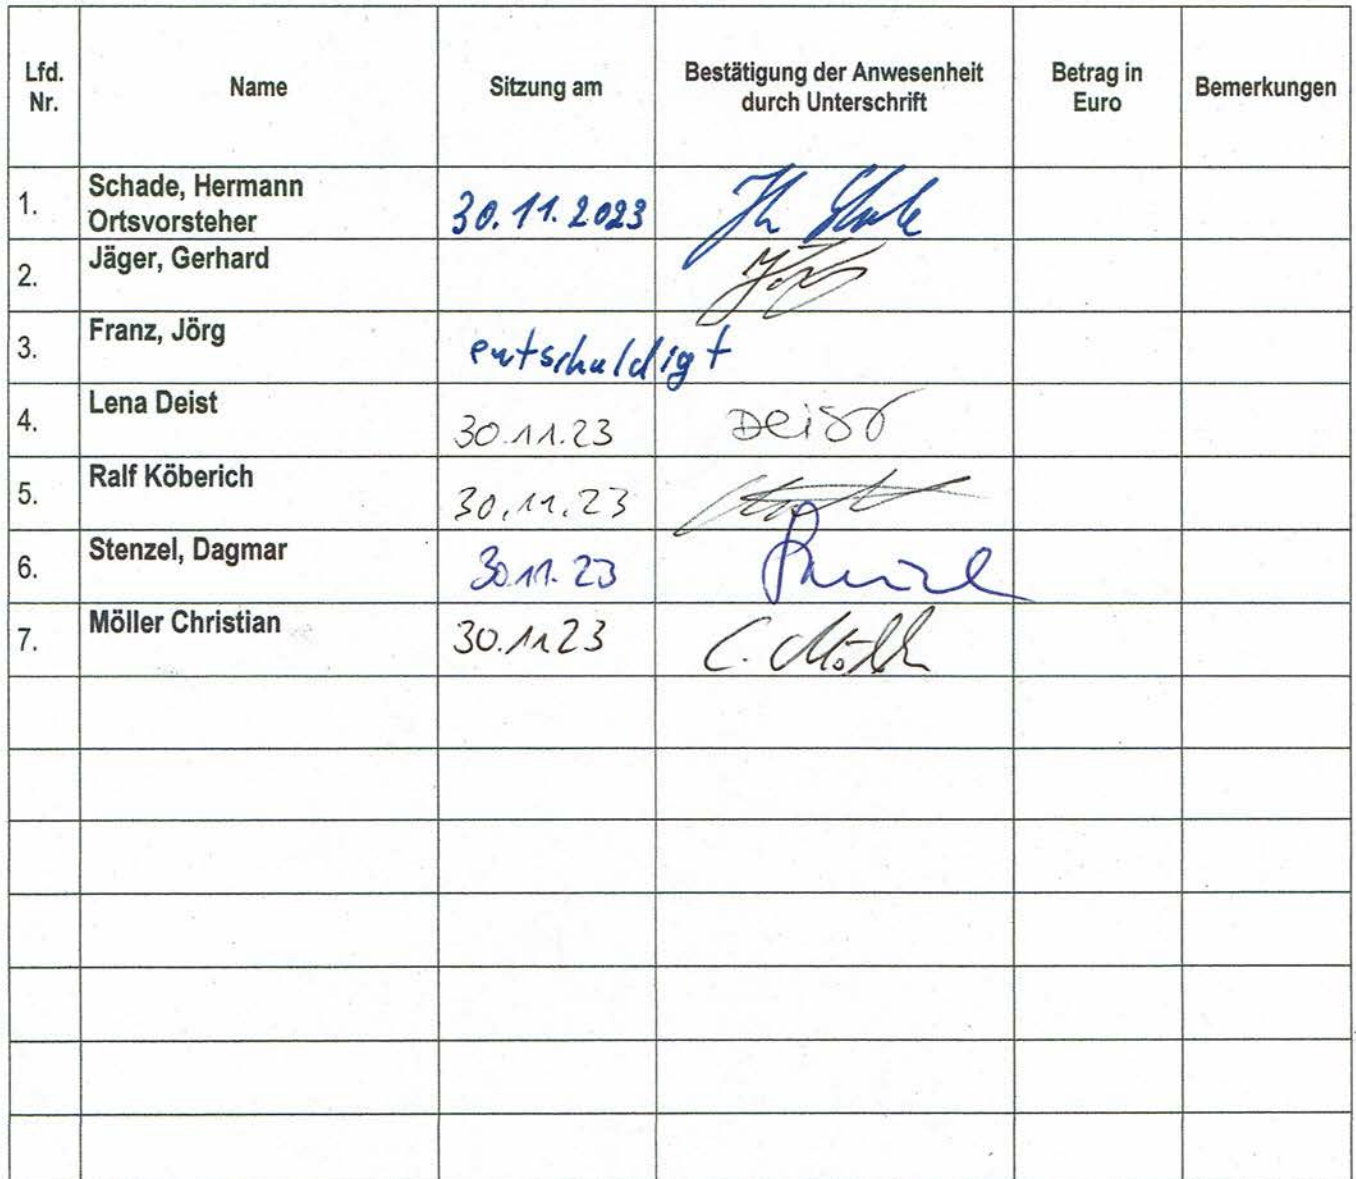 Lfd. Nr. Name Sitzung am Bestätigung der Anwesenheit durch Unterschrift Betrag in Euro Bemerkungen
1. Schade, Hermann Ortsvorsteher 30.11.2023
2. Jäger, Gerhard
3. Franz, Jörg entschuldigt
4. Lena Deist 30.11.23 Deist
5. Ralf Köberich 30.11.23
6. Stenzel, Dagmar 30.11.23
7. Möller Christian 30.11.23 C. Möller